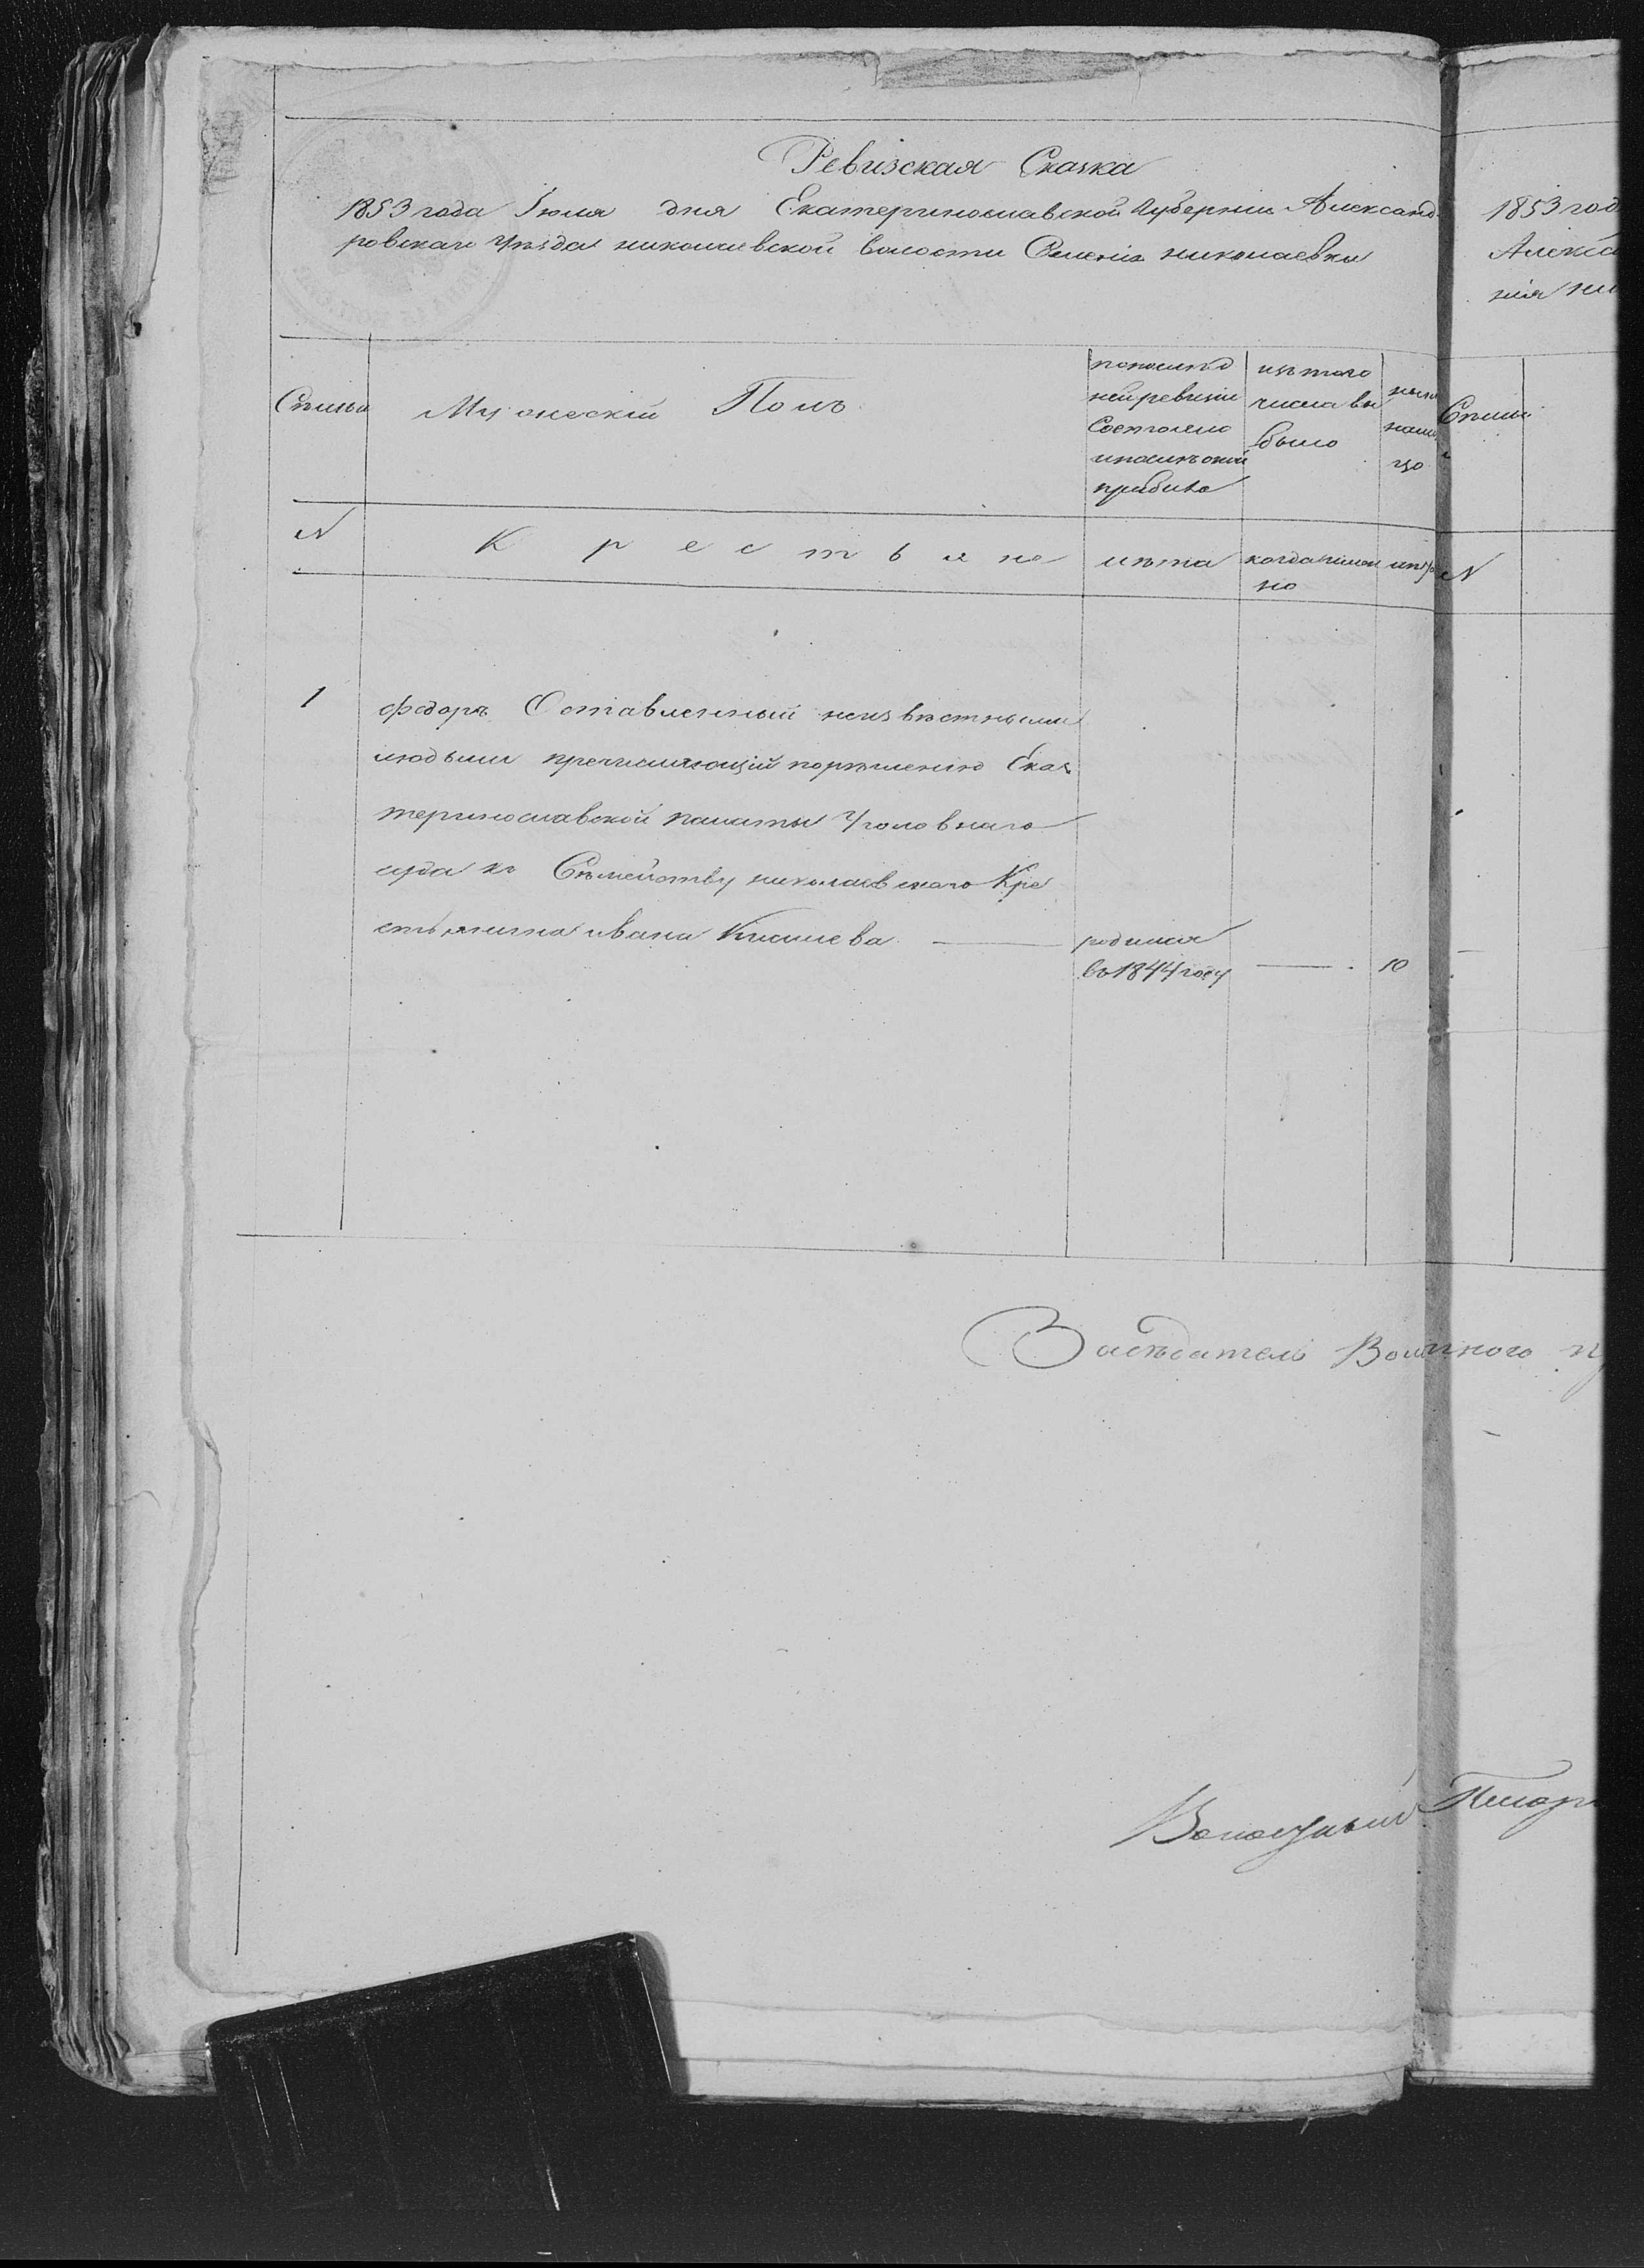 Ревизская Сказка
1853 года Іюля дня Екатеринославской Губерніи Александ-
ровскаго Уѣзда николаевской волости Селенія николаевки
Сѣмьи
Мужескій Полъ
попослѣд
ней ревизіи
Состояло
и послѣ оной
прибыло
изъ того
числа вы
было
ныне
нали
цо
N
Крестьяне
лѣта
когда имен
но
лѣта
1
федоръ Оставленный неизвѣстными
людьми пречисляющій порѣшенію Ека
теринославской палаты Уголовнаго
суда къ Сѣмейству николаевскаго Кре
стьянина ивана Киселева
родился
въ 1844 году
10
Засѣдатель Волостного
Волостный Писарь
1853 год
Алекса
нія ни
Сѣмьи
N